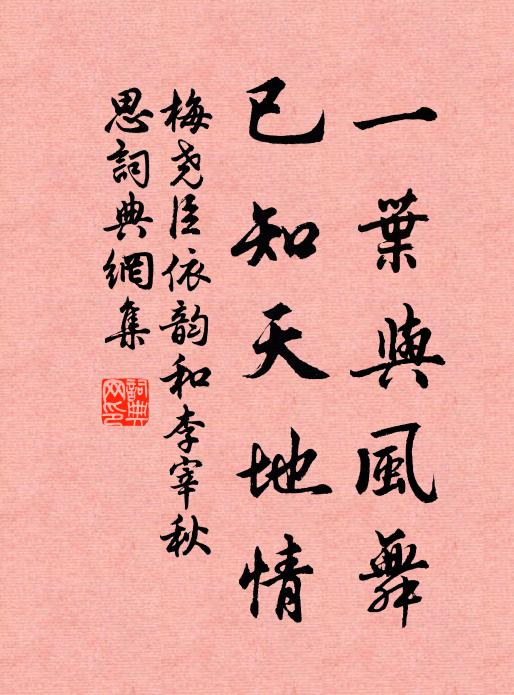 一葉與風舞
已知天地情
梅尧臣依韵和李宰秋
思詞典網集
詞典
网印